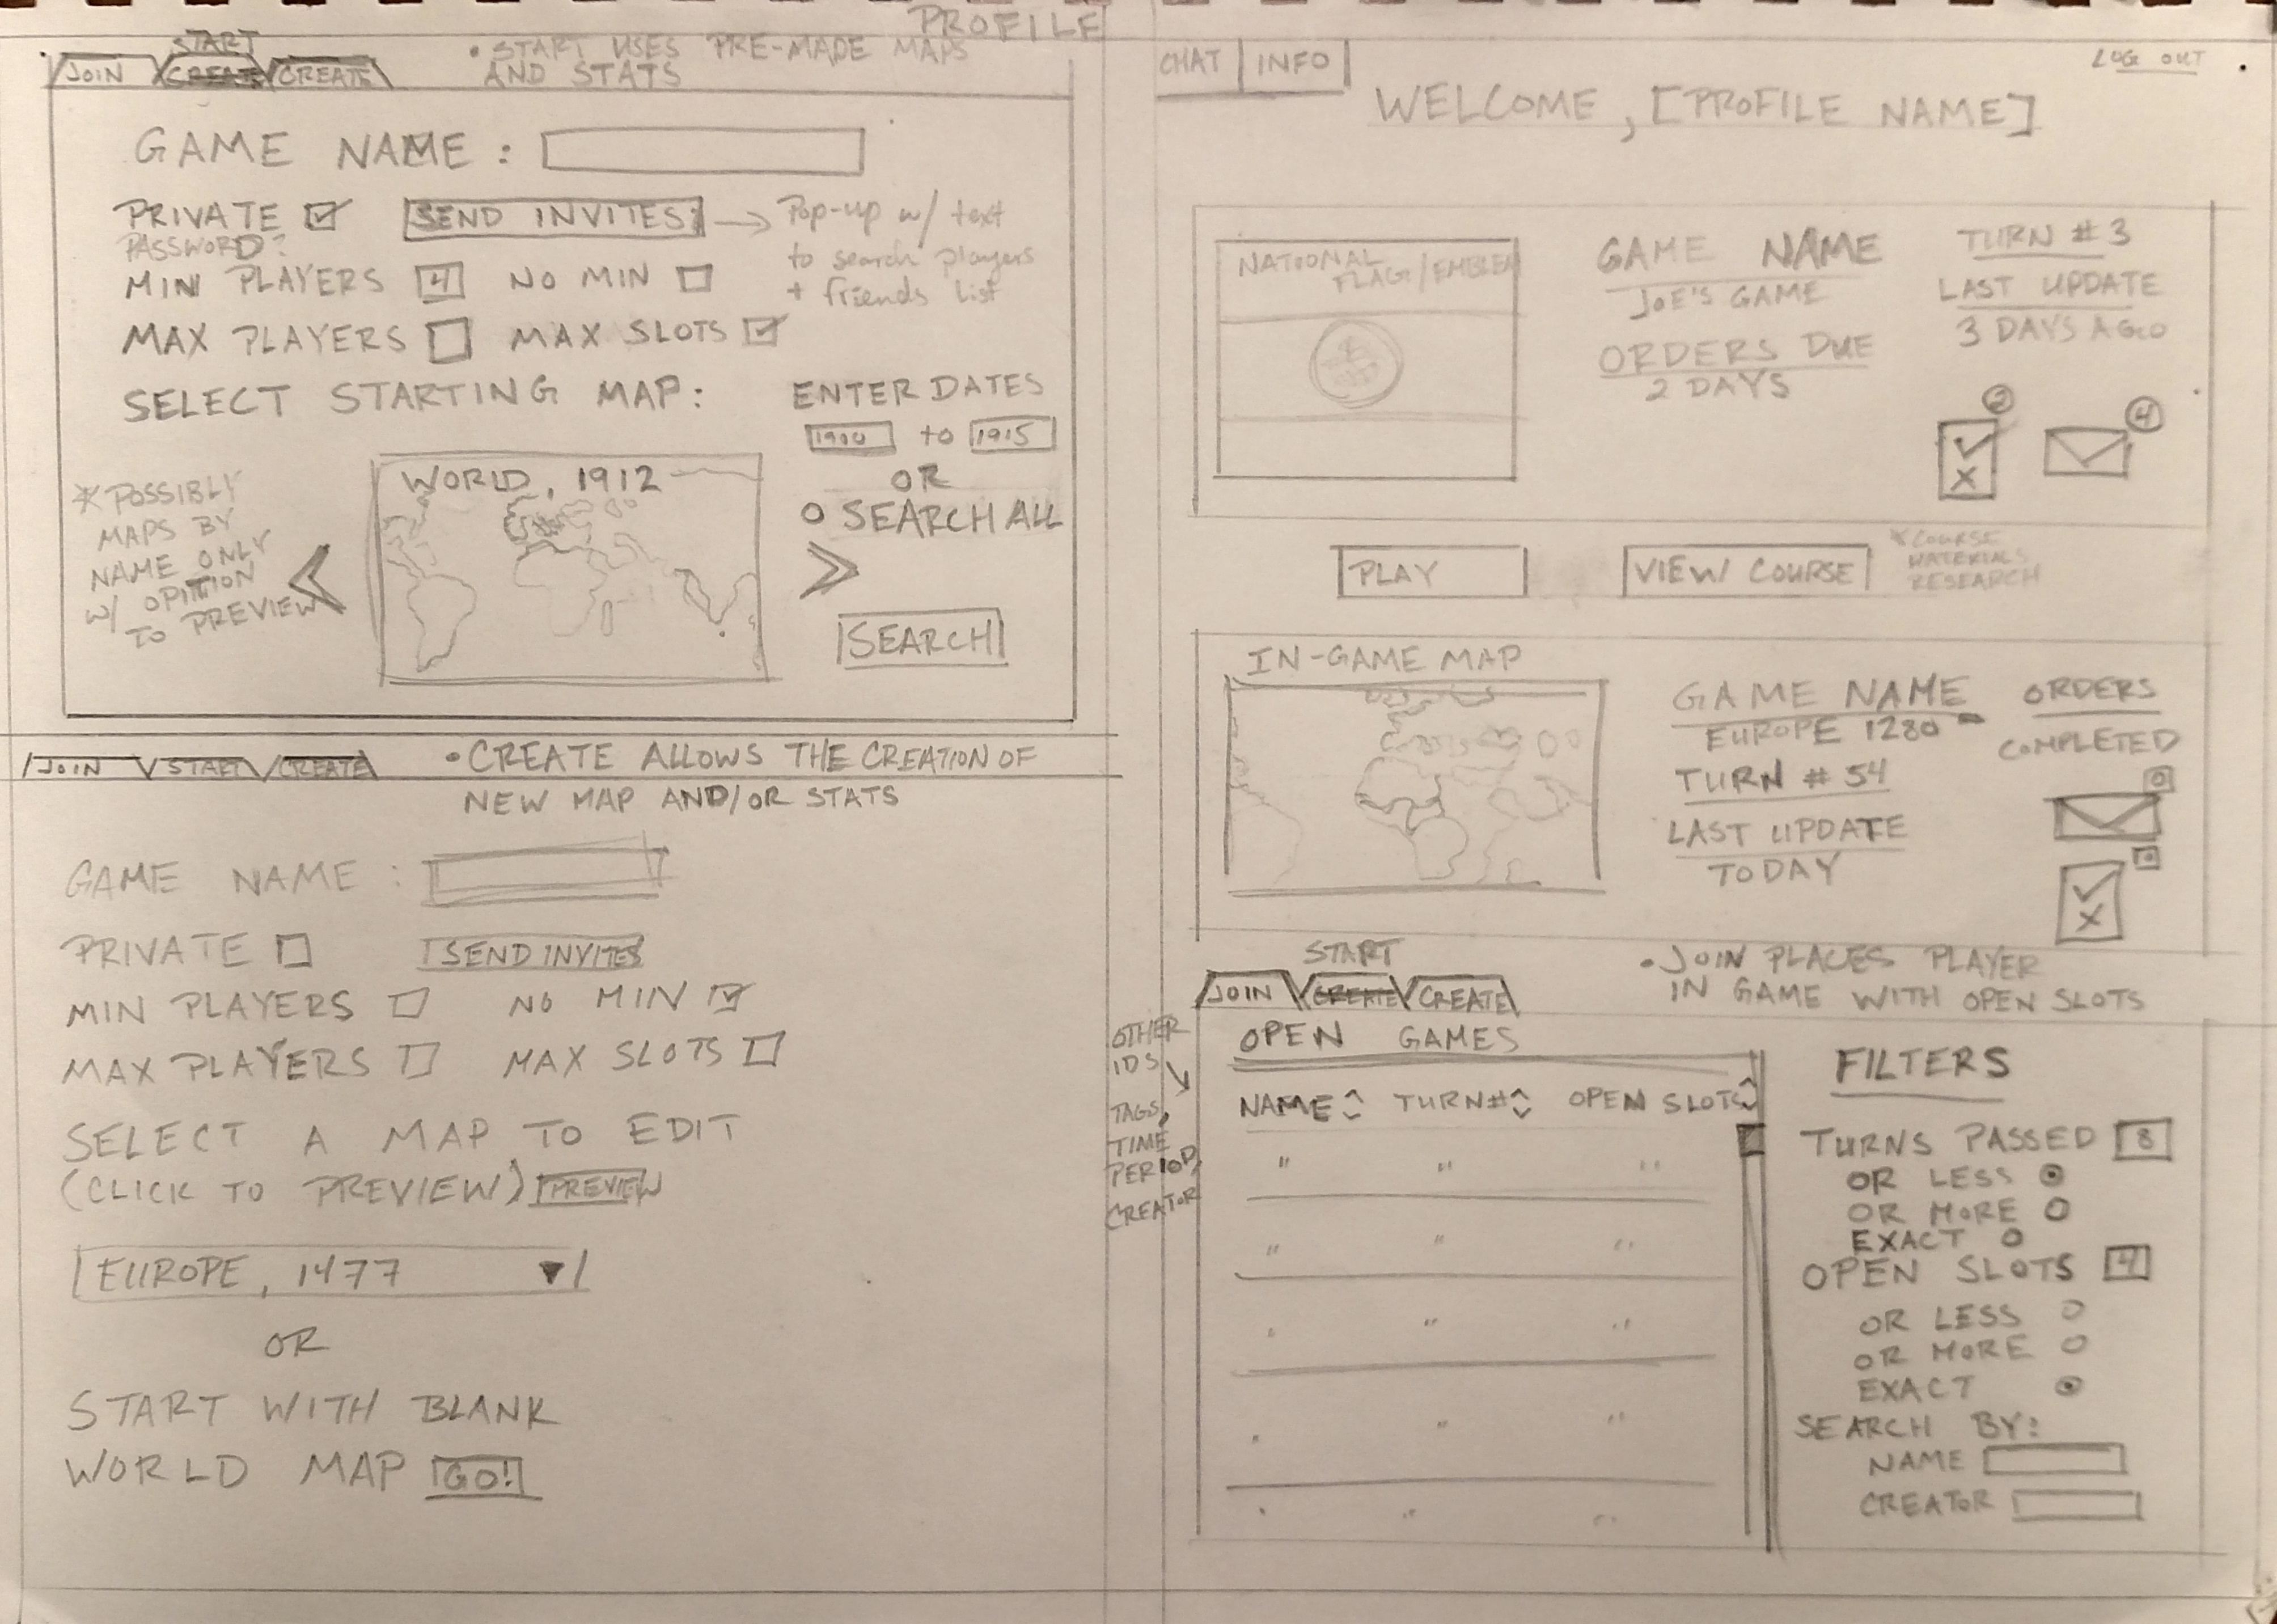 PROFILE
START
JOIN CREATE CREATE
• START USES PRE-MADE MAPS
AND STATS
GAME NAME :
PRIVATE SEND INVITES:
PASSWORD?
Pop-up w/ text
to search players
+ friends list
MIN PLAYERS 4 NO MIN
MAX PLAYERS MAX SLOTS
SELECT STARTING MAP:
ENTER DATES
1900 to 1915
OR
SEARCH ALL
SEARCH
WORLD, 1912
* POSSIBLY
MAPS BY
NAME ONLY
W/ OPITION
TO PREVIEW
JOIN START CREATE
• CREATE ALLOWS THE CREATION OF
NEW MAP AND/OR STATS
GAME NAME :
PRIVATE SEND INVITES
MIN PLAYERS NO MIN
MAX PLAYERS MAX SLOTS
SELECT A MAP TO EDIT
(CLICK TO PREVIEW) PREVIEW
EUROPE, 1477
OR
START WITH BLANK
WORLD MAP GO!
CHAT INFO
LOG OUT
WELCOME, [PROFILE NAME]
NATIONAL
FLAG/EMBLEM
GAME NAME
JOE'S GAME
ORDERS DUE
2 DAYS
TURN #3
LAST UPDATE
3 DAYS AGO
2
4
X
PLAY
VIEW COURSE
* COURSE
MATERIALS
RESEARCH
IN-GAME MAP
GAME NAME
EUROPE 1280
TURN #54
LAST UPDATE
TODAY
ORDERS
COMPLETED
0
0
X
START
JOIN CREATE CREATE
• JOIN PLACES PLAYER
IN GAME WITH OPEN SLOTS
OTHER
IDS
TAGS,
TIME
PERIOD,
CREATOR
OPEN GAMES
NAME TURN# OPEN SLOTS
" " "
" " "
" "
" "
" "
FILTERS
TURNS PASSED 8
OR LESS
OR MORE
EXACT
OPEN SLOTS 4
OR LESS
OR MORE
EXACT
SEARCH BY:
NAME
CREATOR